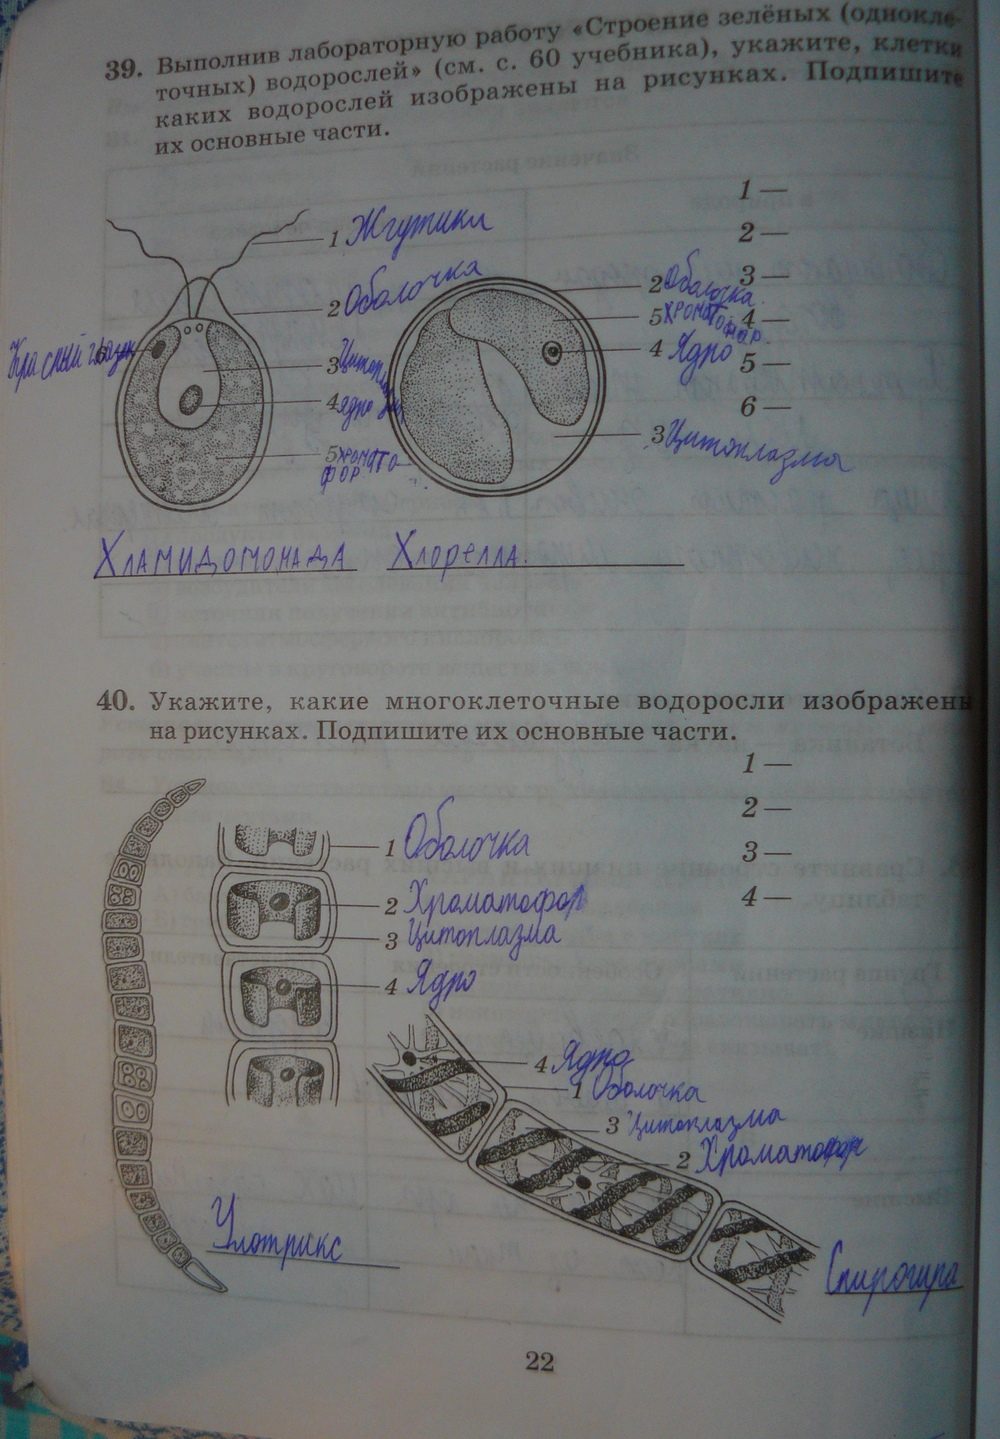 39. Выполнив лабораторную работу «Строение зелёных (однокле-
точных) водорослей» (см. с. 60 учебника), укажите, клетки
каких водорослей изображены на рисунках. Подпишите
их основные части.
1 —
2 —
3 —
4 —
5 —
6 —
1 Жгутики
2 Оболочка
Красный глазок
3 Цитоплазма
4 ядро
5 хромато
фор
2 Оболочка
5 хромато
фор
4 Ядро
3 Цитоплазма
Хламидомонада Хлорелла.
40. Укажите, какие многоклеточные водоросли изображены
на рисунках. Подпишите их основные части.
1 —
2 —
3 —
4 —
1 Оболочка
2 Хроматофор
3 Цитоплазма
4 Ядро
4 Ядро
1 Оболочка
3 Цитоплазма
2 Хроматофор
Улотрикс
Спирогира
22